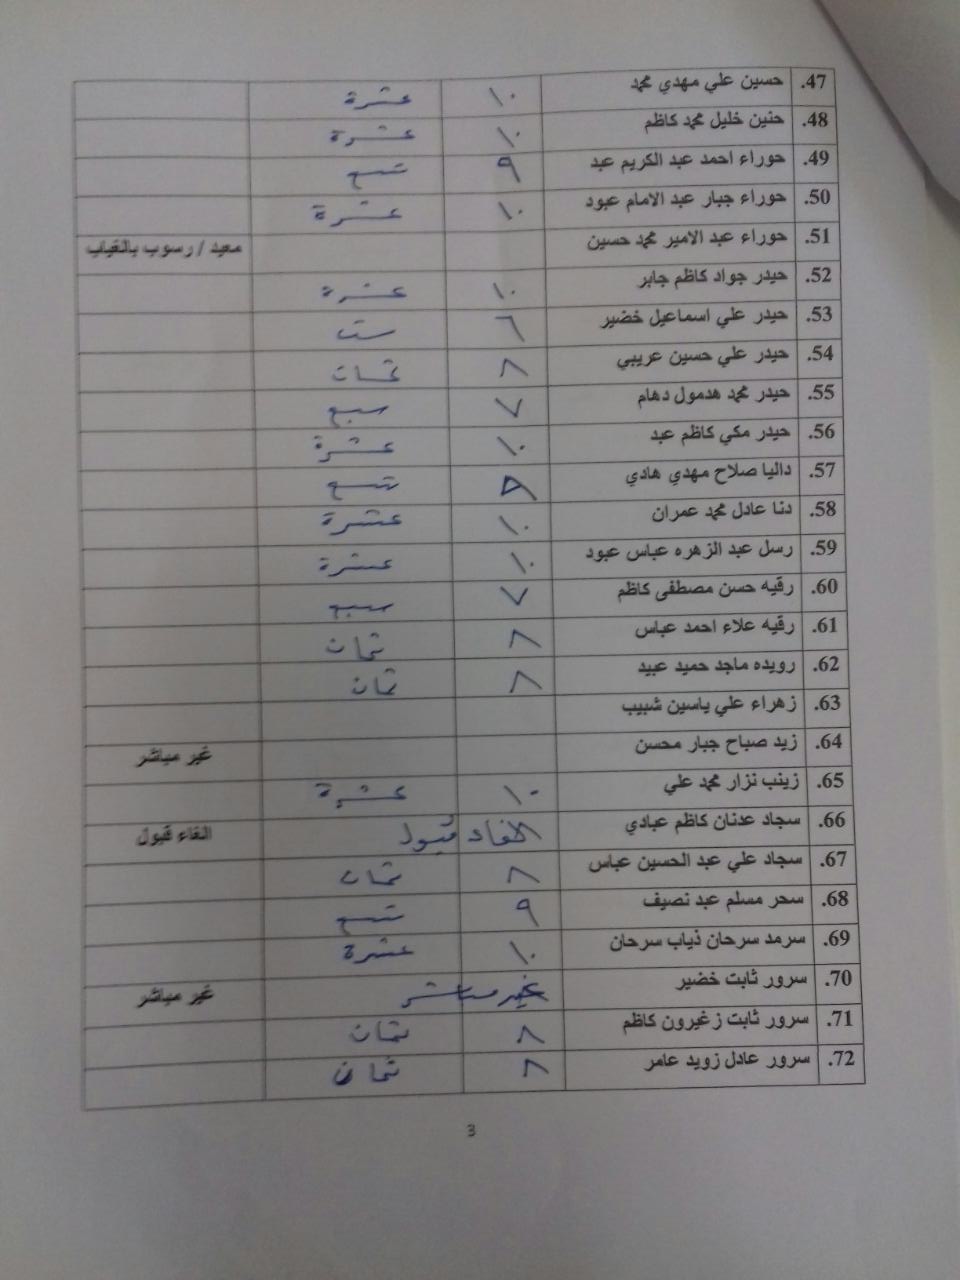 47. حسين علي مهدي محمد ١٠ عشرة
48. حنين خليل محمد كاظم ١٠ عشرة
49. حوراء احمد عبد الكريم عبد ٩ تسع
50. حوراء جبار عبد الامام عبود ١٠ عشرة
51. حوراء عبد الامير محمد حسين معيد / رسوب بالغياب
52. حيدر جواد كاظم جابر ١٠ عشرة
53. حيدر علي اسماعيل خضير ٦ ست
54. حيدر علي حسين عريبي ٨ ثمان
55. حيدر محمد هدمول دهام ٧ سبع
56. حيدر مكي كاظم عبد ١٠ عشرة
57. داليا صلاح مهدي هادي ٩ تسع
58. دنا عادل محمد عمران ١٠ عشرة
59. رسل عبد الزهره عباس عبود ١٠ عشرة
60. رقيه حسن مصطفى كاظم ٧ سبع
61. رقيه علاء احمد عباس ٨ ثمان
62. رويده ماجد حميد عبيد ٨ ثمان
63. زهراء علي ياسين شبيب
64. زيد صباح جبار محسن غير مباشر
65. زينب نزار محمد علي ١٠ عشرة
66. سجاد عدنان كاظم عبادي الغاء قبول الغاء قبول
67. سجاد علي عبد الحسين عباس ٨ ثمان
68. سحر مسلم عبد نصيف ٩ تسع
69. سرمد سرحان ذياب سرحان ١٠ عشرة
70. سرور ثابت خضير غير مباشر غير مباشر
71. سرور ثابت زغيرون كاظم ٨ ثمان
72. سرور عادل زويد عامر ٨ ثمان
3